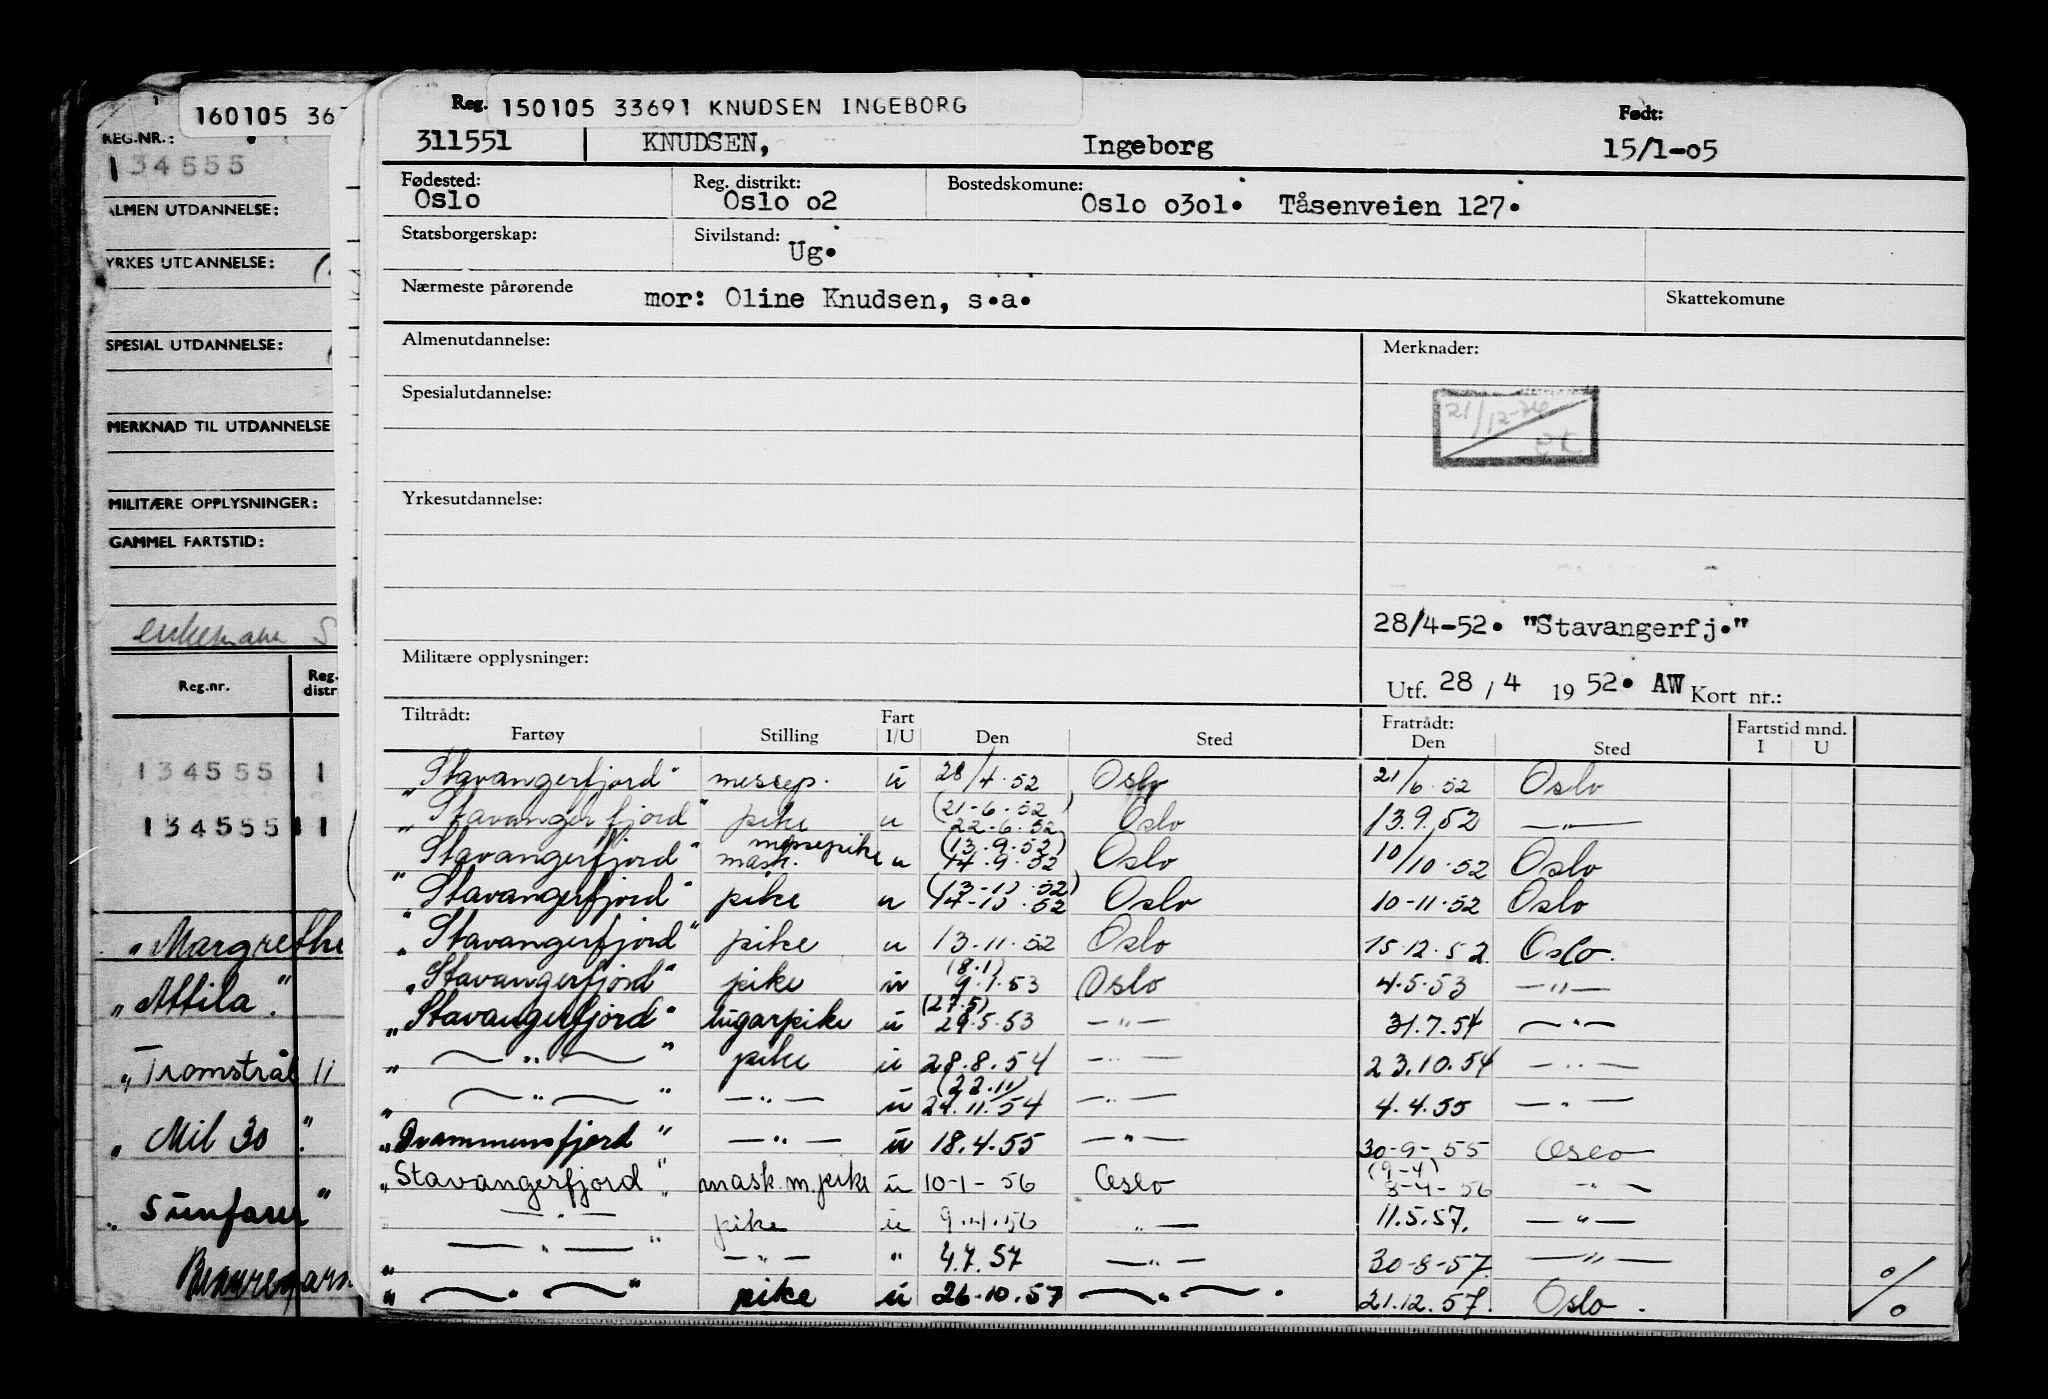 160105 367
REG.NR.:
134555
ALMEN UTDANNELSE:
YRKES UTDANNELSE:
SPESIAL UTDANNELSE:
MERKNAD TIL UTDANNELSE
MILITÆRE OPPLYSNINGER:
GAMMEL FARTSTID:
enkemann S
Reg.nr. Reg. distr
134555 1
134555 1 1
"Margrethe
"Attila".
"Tromstrål 11
"Mil 30".
"Sunfarer"
Reg. 150105 33691 KNUDSEN INGEBORG Født:
311551 KNUDSEN, Ingeborg 15/1-05
Fødested: Reg. distrikt: Bostedskomune:
Oslo Oslo o2 Oslo o3o1. Tåsenveien 127.
Statsborgerskap: Sivilstand:
Ug.
Nærmeste pårørende mor: Oline Knudsen, s.a. Skattekomune
Almenutdannelse: Merknader:
Spesialutdannelse:
21/12-
Yrkesutdannelse:
28/4-52. "Stavangerfj."
Militære opplysninger:
Utf. 28 / 4 19 52. AW Kort nr.:
Tiltrådt: Fart Fratrådt: Fartstid mnd.
Fartøy Stilling I/U Den Sted Den Sted I U
"Stavangerfjord" messep. u 28/4.52 Oslo 21/6.52 Oslo
"Stavangerfjord" pike u (21-6.52) 22-6.52 Oslo 13.9.52 —"—
"Stavangerfjord" mask. messepike u (13.9.52) 14.9.52 Oslo 10/10.52 Oslo
"Stavangerfjord" pike u (13-10.52) 14-10.52 Oslo 10-11.52 Oslo
"Stavangerfjord" pike u 13.11.52 Oslo 15.12.52. Oslo.
"Stavangerfjord" pike u (8.1) 9.1.53 Oslo 4.5.53 —"—
"Stavangerfjord" lugarpike u (27.5) 29.5.53 —"— 31.7.54 —"—
" —"— " pike u 28.8.54 —"— 23.10.54 —"—
" —"— " —"— u (22.11) 24.11.54 —"— 4.4.55 —"—
"Drammensfjord" —"— u 18.4.55 —"— 30-9-55 Oslo
"Stavangerfjord". mask. m. pike u 10-1-56 Oslo (9-4) 3-4-56 —"—
—"— pike u 9.4.56 "— 11.5.57. —"—
" —"— " —"— " 4.7.57 —"— 30-8-57. —"—
" —"— " pike u 26.10.57 —"—. 21.12.57. Oslo. %